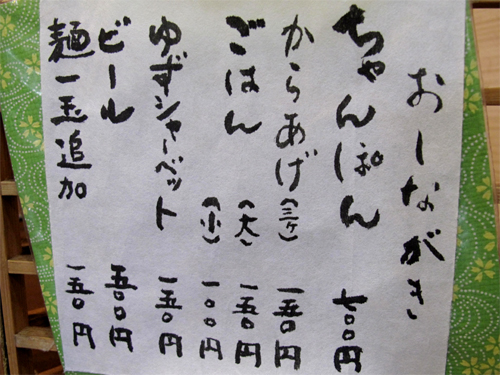 おしながき
ちゃんぽん 七〇〇円
からあげ（三ケ） 一五〇円
ごはん（大） 一五〇円
（小） 一〇〇円
ゆずシャーベット 一五〇円
ビール 五〇〇円
麺一玉追加 一五〇円